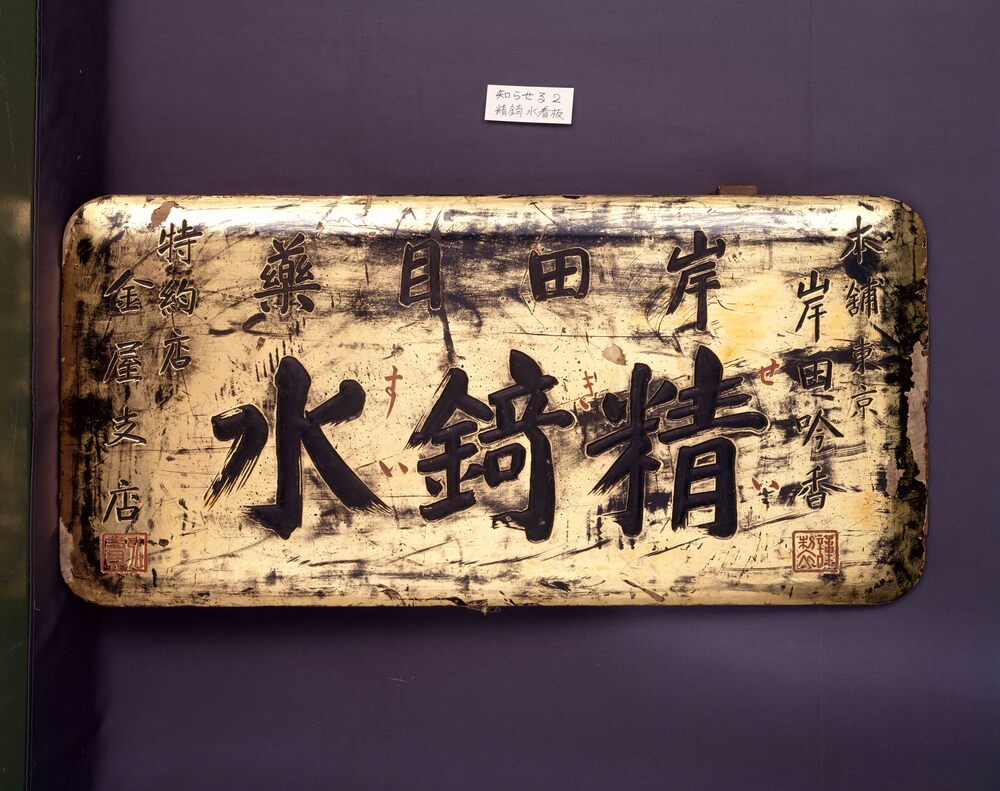 知らせる2
精錡水看板
本舗 東京
岸田吟香
岸田目藥
精錡水
せい
き
すい
特約店
金屋支店
謹製